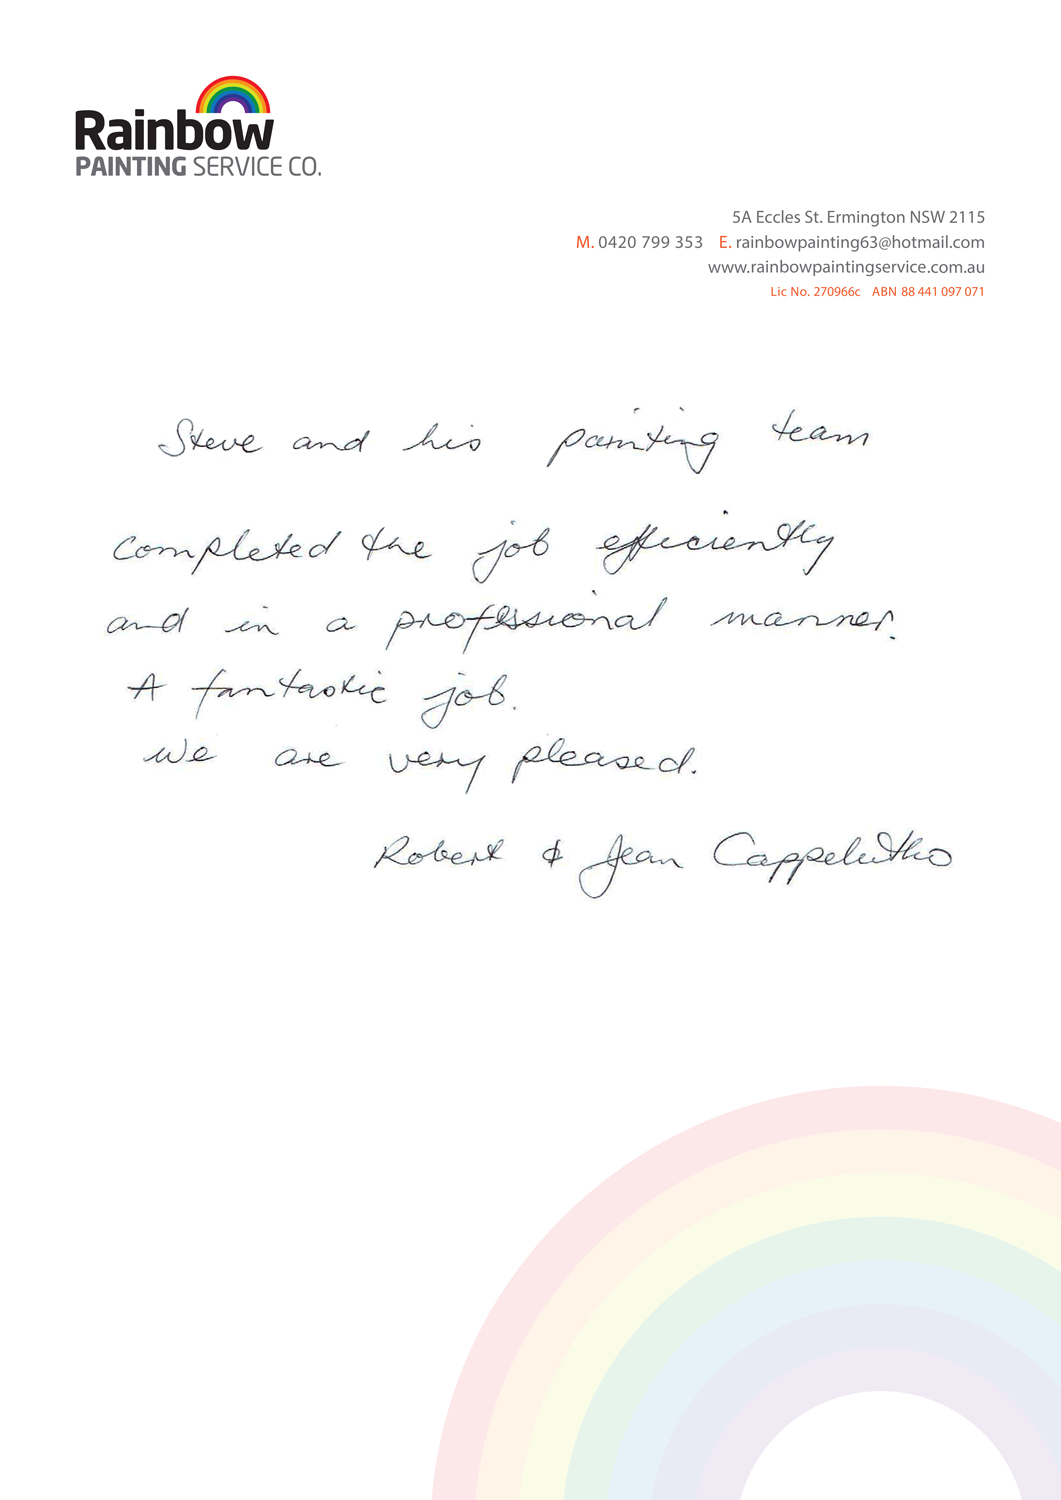 Rainbow
PAINTING SERVICE CO.
5A Eccles St. Ermington NSW 2115
M. 0420 799 353 E. rainbowpainting63@hotmail.com
www.rainbowpaintingservice.com.au
Lic No. 270966c ABN 88 441 097 071
Steve and his painting team
completed the job efficiently
and in a professional manner.
A fantastic job.
We are very pleased.
Robert & Jean